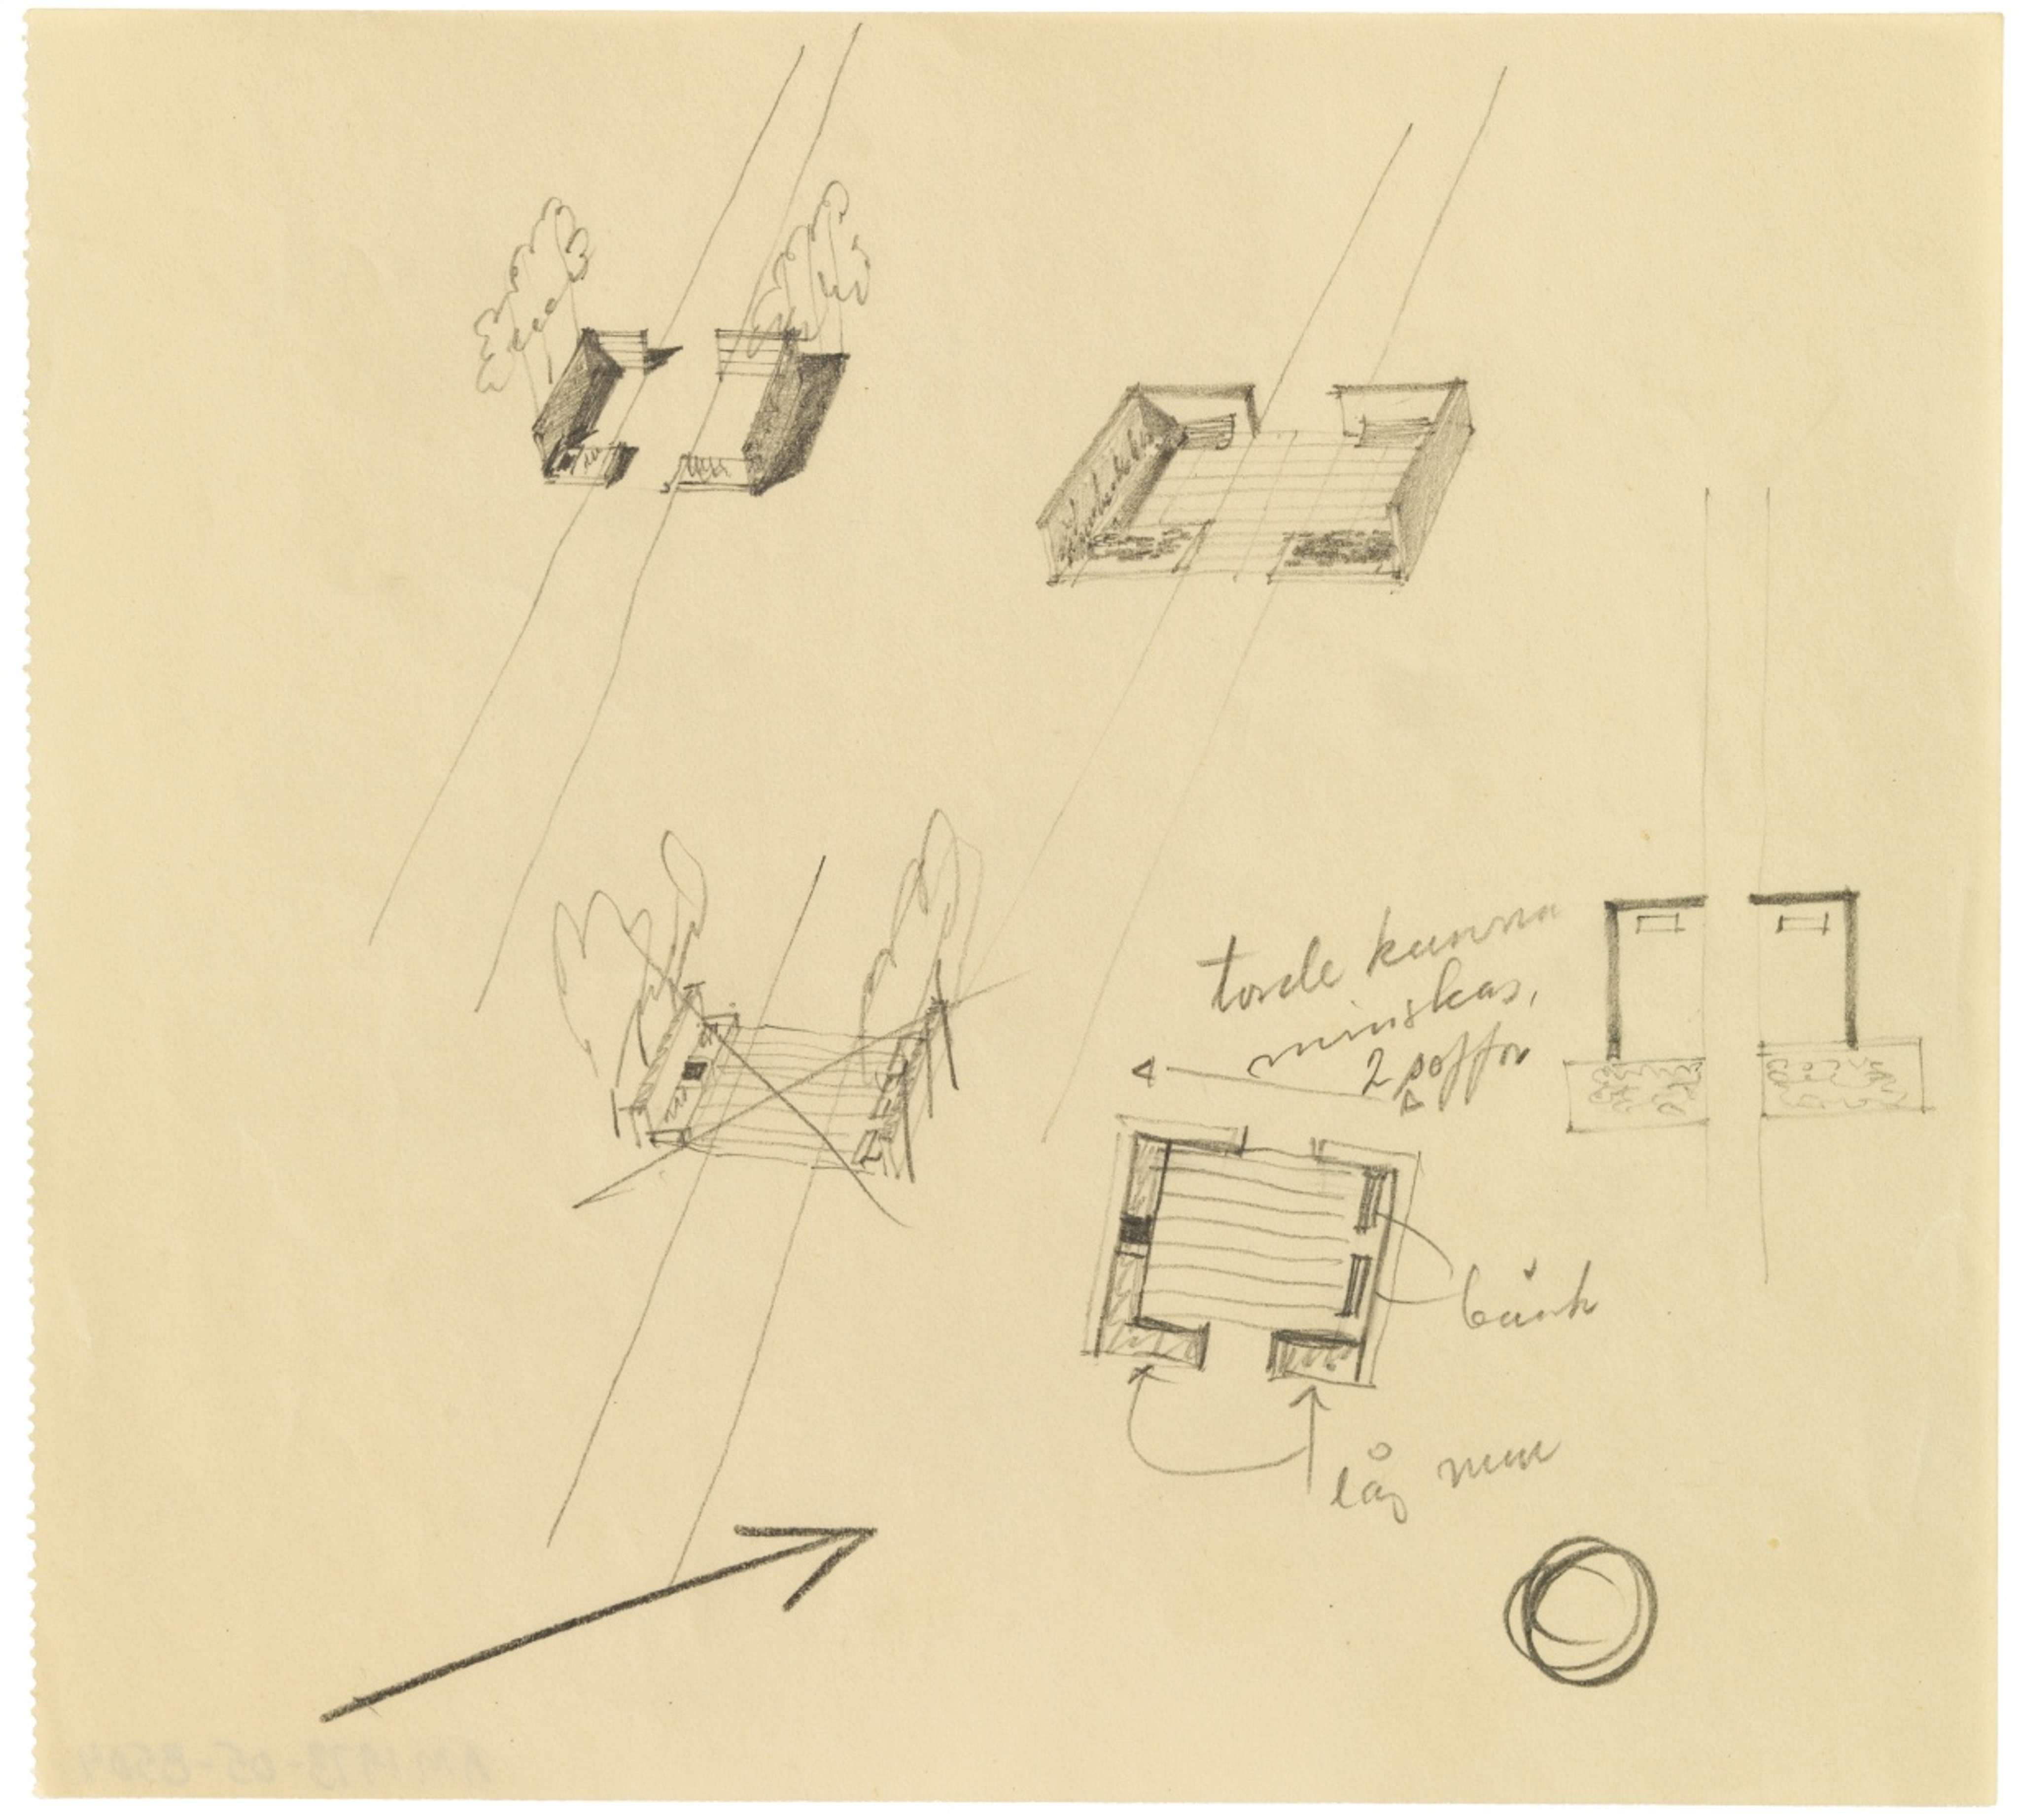 torde kunna
minskas,
2 soffor
bänk
låg mur
AM 1973-05-8504